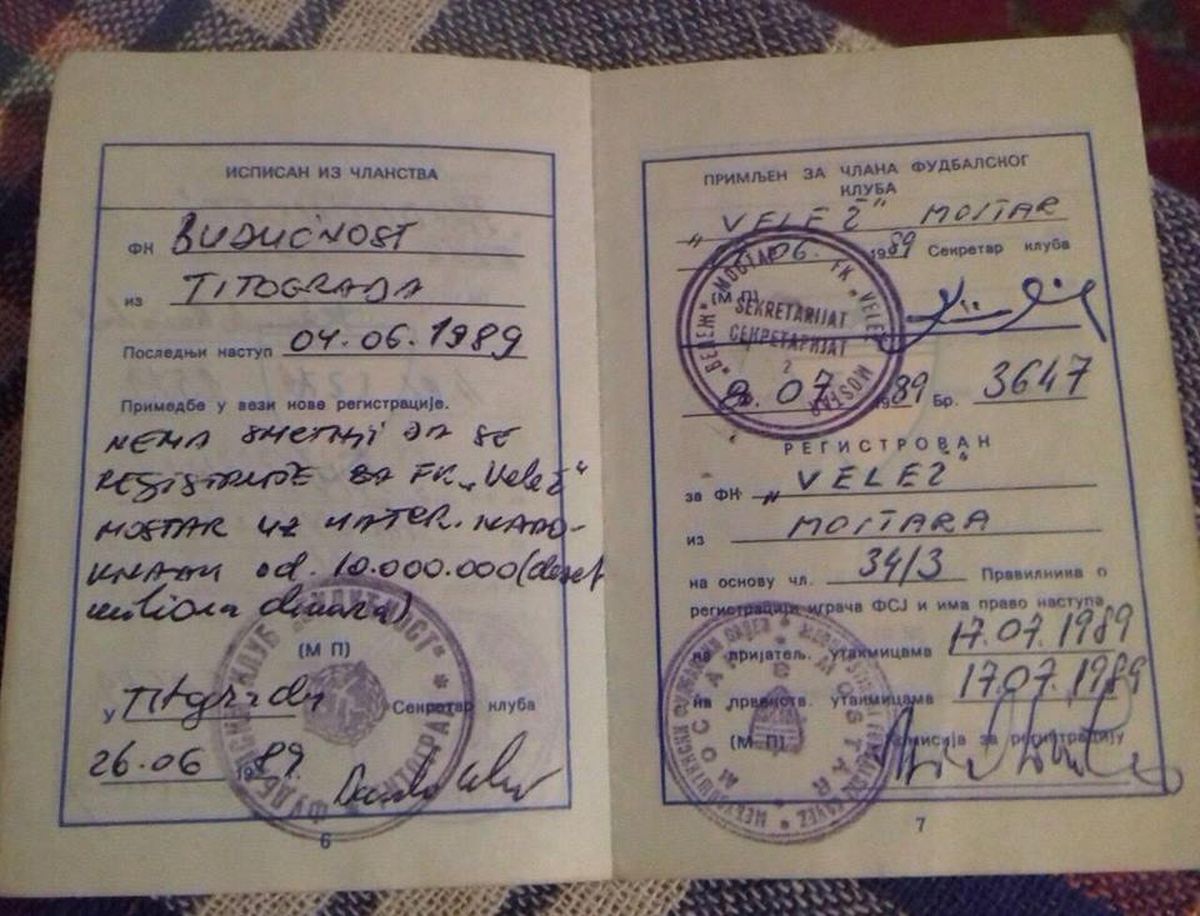 ИСПИСАН ИЗ ЧЛАНСТВА
ФК BUDUĆNOST
из TITOGRADA
Последњи наступ 04.06.1989
Примедбе у вези нове регистрације.
NEMA SMETNJI DA SE
REGISTRUJE ZA FK „Velež"
MOSTAR UZ MATER. NADO-
KNADU od 10.000.000 (deset
miliona dinara)
(М П)
у Titogradu Секретар клуба
26.06 1989.
ФУДБАЛСКИ КЛУБ "БУДУЋНОСТ" * ТИТОГРАД *
6
ПРИМЉЕН ЗА ЧЛАНА ФУДБАЛСКОГ
КЛУБА
„VELEŽ" MOSTAR
06. 1989 Секретар клуба
(М П)
"ВЕЛЕЖ" МОСТАР FK "VELEŽ" MOSTAR
SEKRETARIJAT
СЕКРЕТАРИЈАТ
2
07 1989 Бр. 3647
РЕГИСТРОВАН
за ФК „VELEŽ"
из MOSTARA
на основу чл. 34/3 Правилника о
регистрацији играча ФСЈ и има право наступа
на пријатељ. утакмицама 17.07.1989
на првенств. утакмицама 17.07.1989
(М П) Комисија за регистрацију
МЕЂУОПШТИНСКИ ФУДБАЛСКИ САВЕЗ * MEĐUOPŠTINSKI FUDBALSKI SAVEZ *
МОСТАР MOSTAR
7